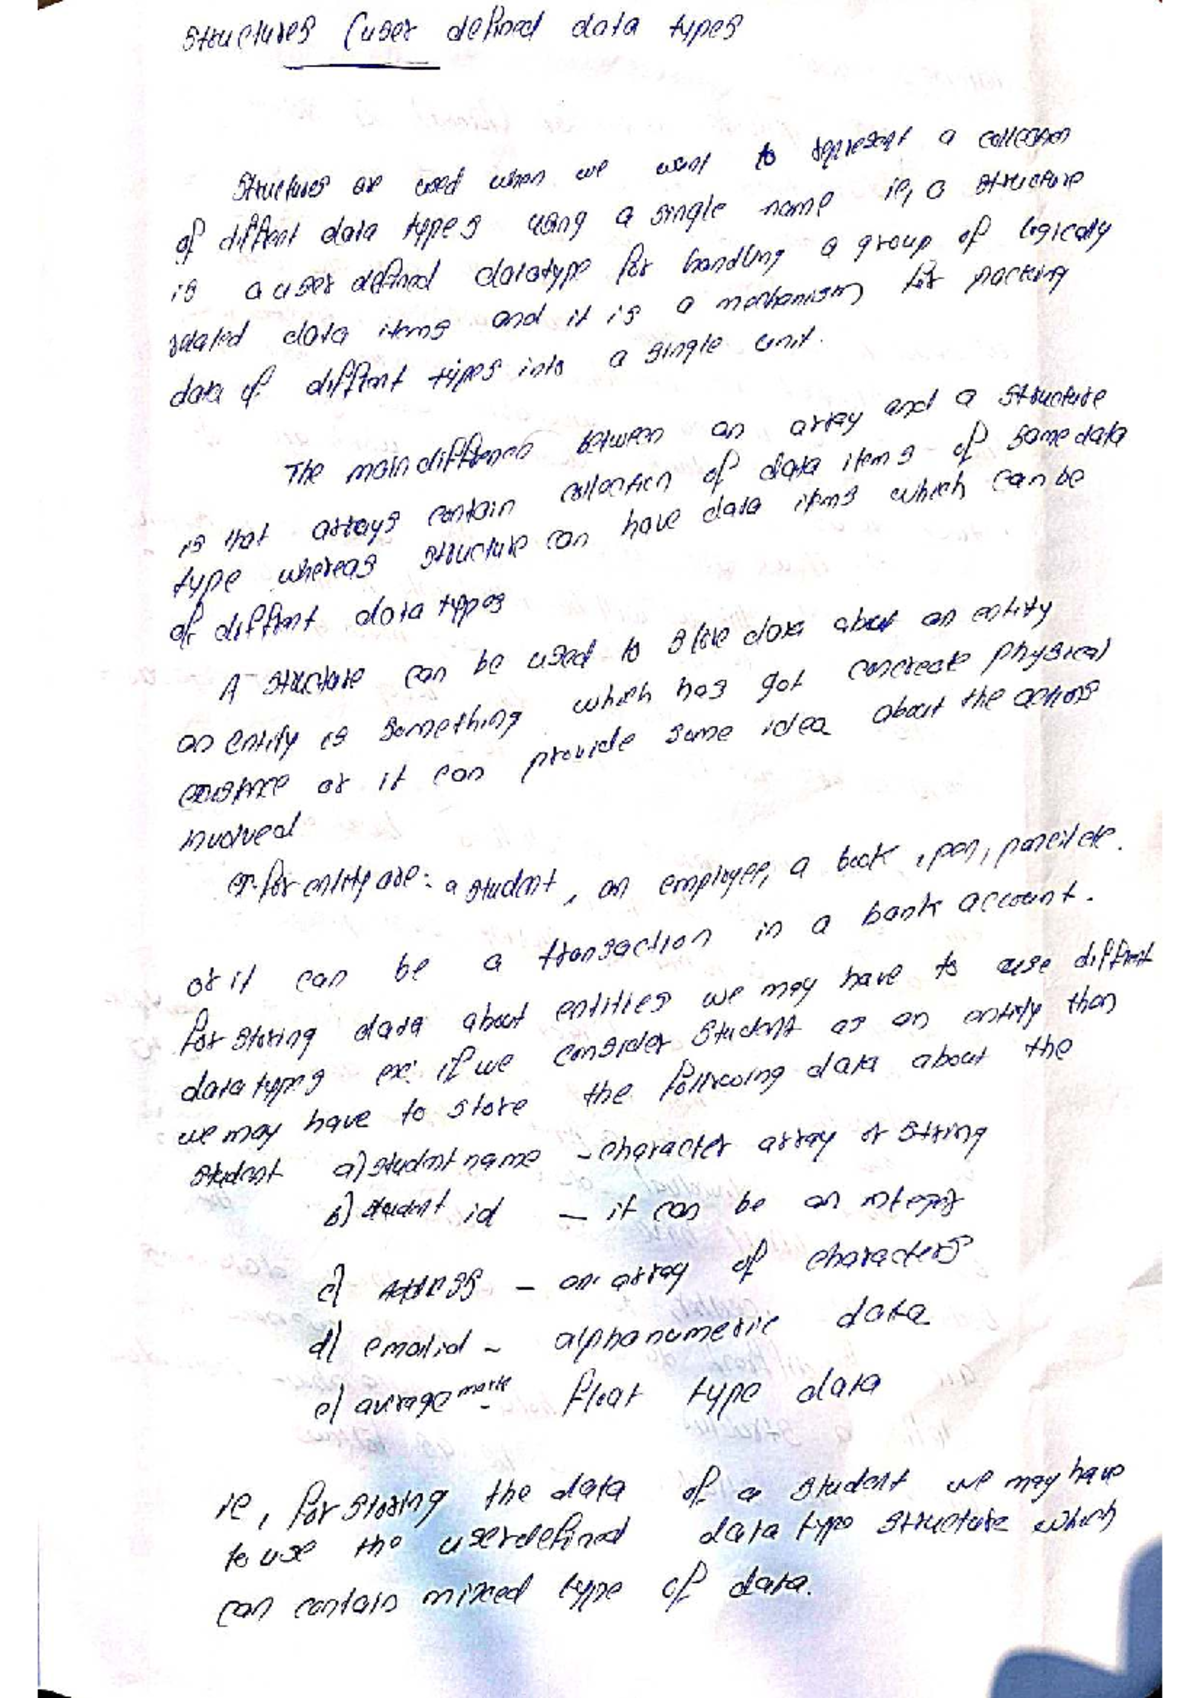 structures (user defined data types
Structures are used when we want to represent a collection
of diffrent data types using a single name ie, a structure
is a user defined datatype for handling a group of logically
related data items and it is a mechanism for packing
data of diffrent types into a single unit.
The main difference between an array and a structure
is that arrays contain collection of data items of same data
type whereas structure can have data items which can be
of diffrent data types
A structure can be used to store data about an entity
an entity is something which has got concreate physical
existnce or it can provide some idea about the actions
involved
ex. for entity are: a student, an employee, a book, pen, pencil etc.
or it can be a transaction in a bank account.
For storing data about entities we may have to use diffrent
data types ex: if we consider student as an entity than
we may have to store the following data about the
student a) student name - character array or string
b) student id - it can be an integer
c) Address - an array of characters
d) email id - alphanumeric data
e) average mark - float type data
ie, for storing the data of a student we may have
to use the userdefined data type structure which
can contain mixed type of data.